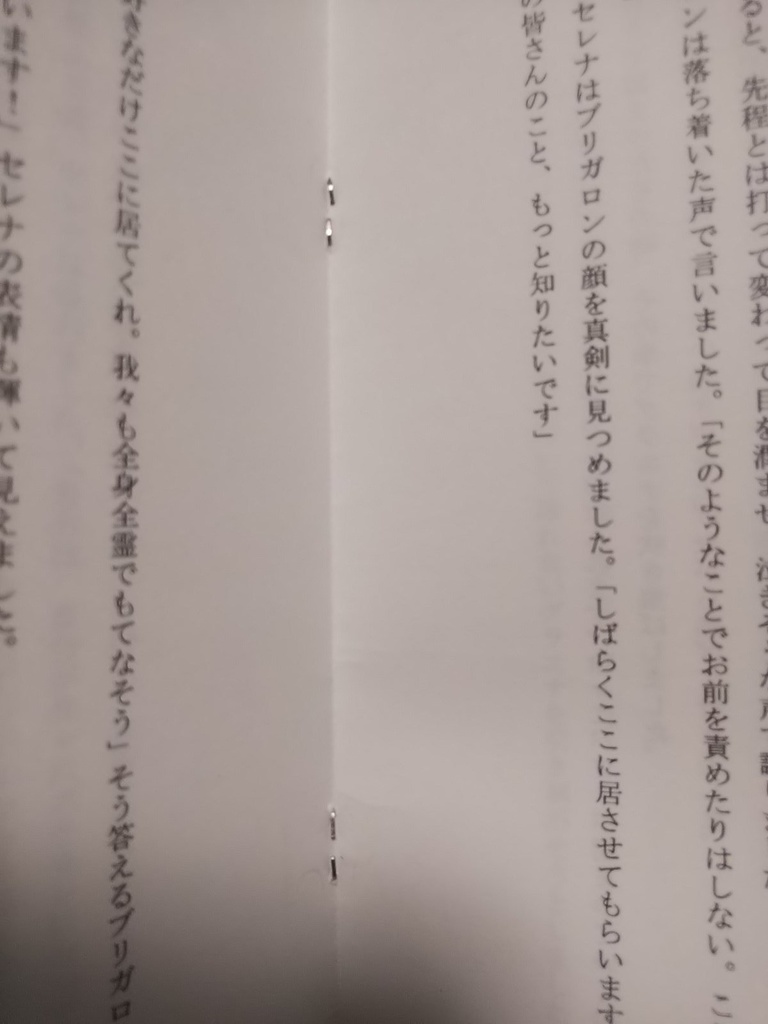 ると、先程とは打って変わって目を潤ませ、泣きそうな声で
ンは落ち着いた声で言いました。「そのようなことでお前を責めたりはしない。こ
セレナはブリガロンの顔を真剣に見つめました。「しばらくここに居させてもらいます
の皆さんのこと、もっと知りたいです」
好きなだけここに居てくれ。我々も全身全霊でもてなそう」そう答えるブリガロ
います！」セレナの表情も輝いて見えました。